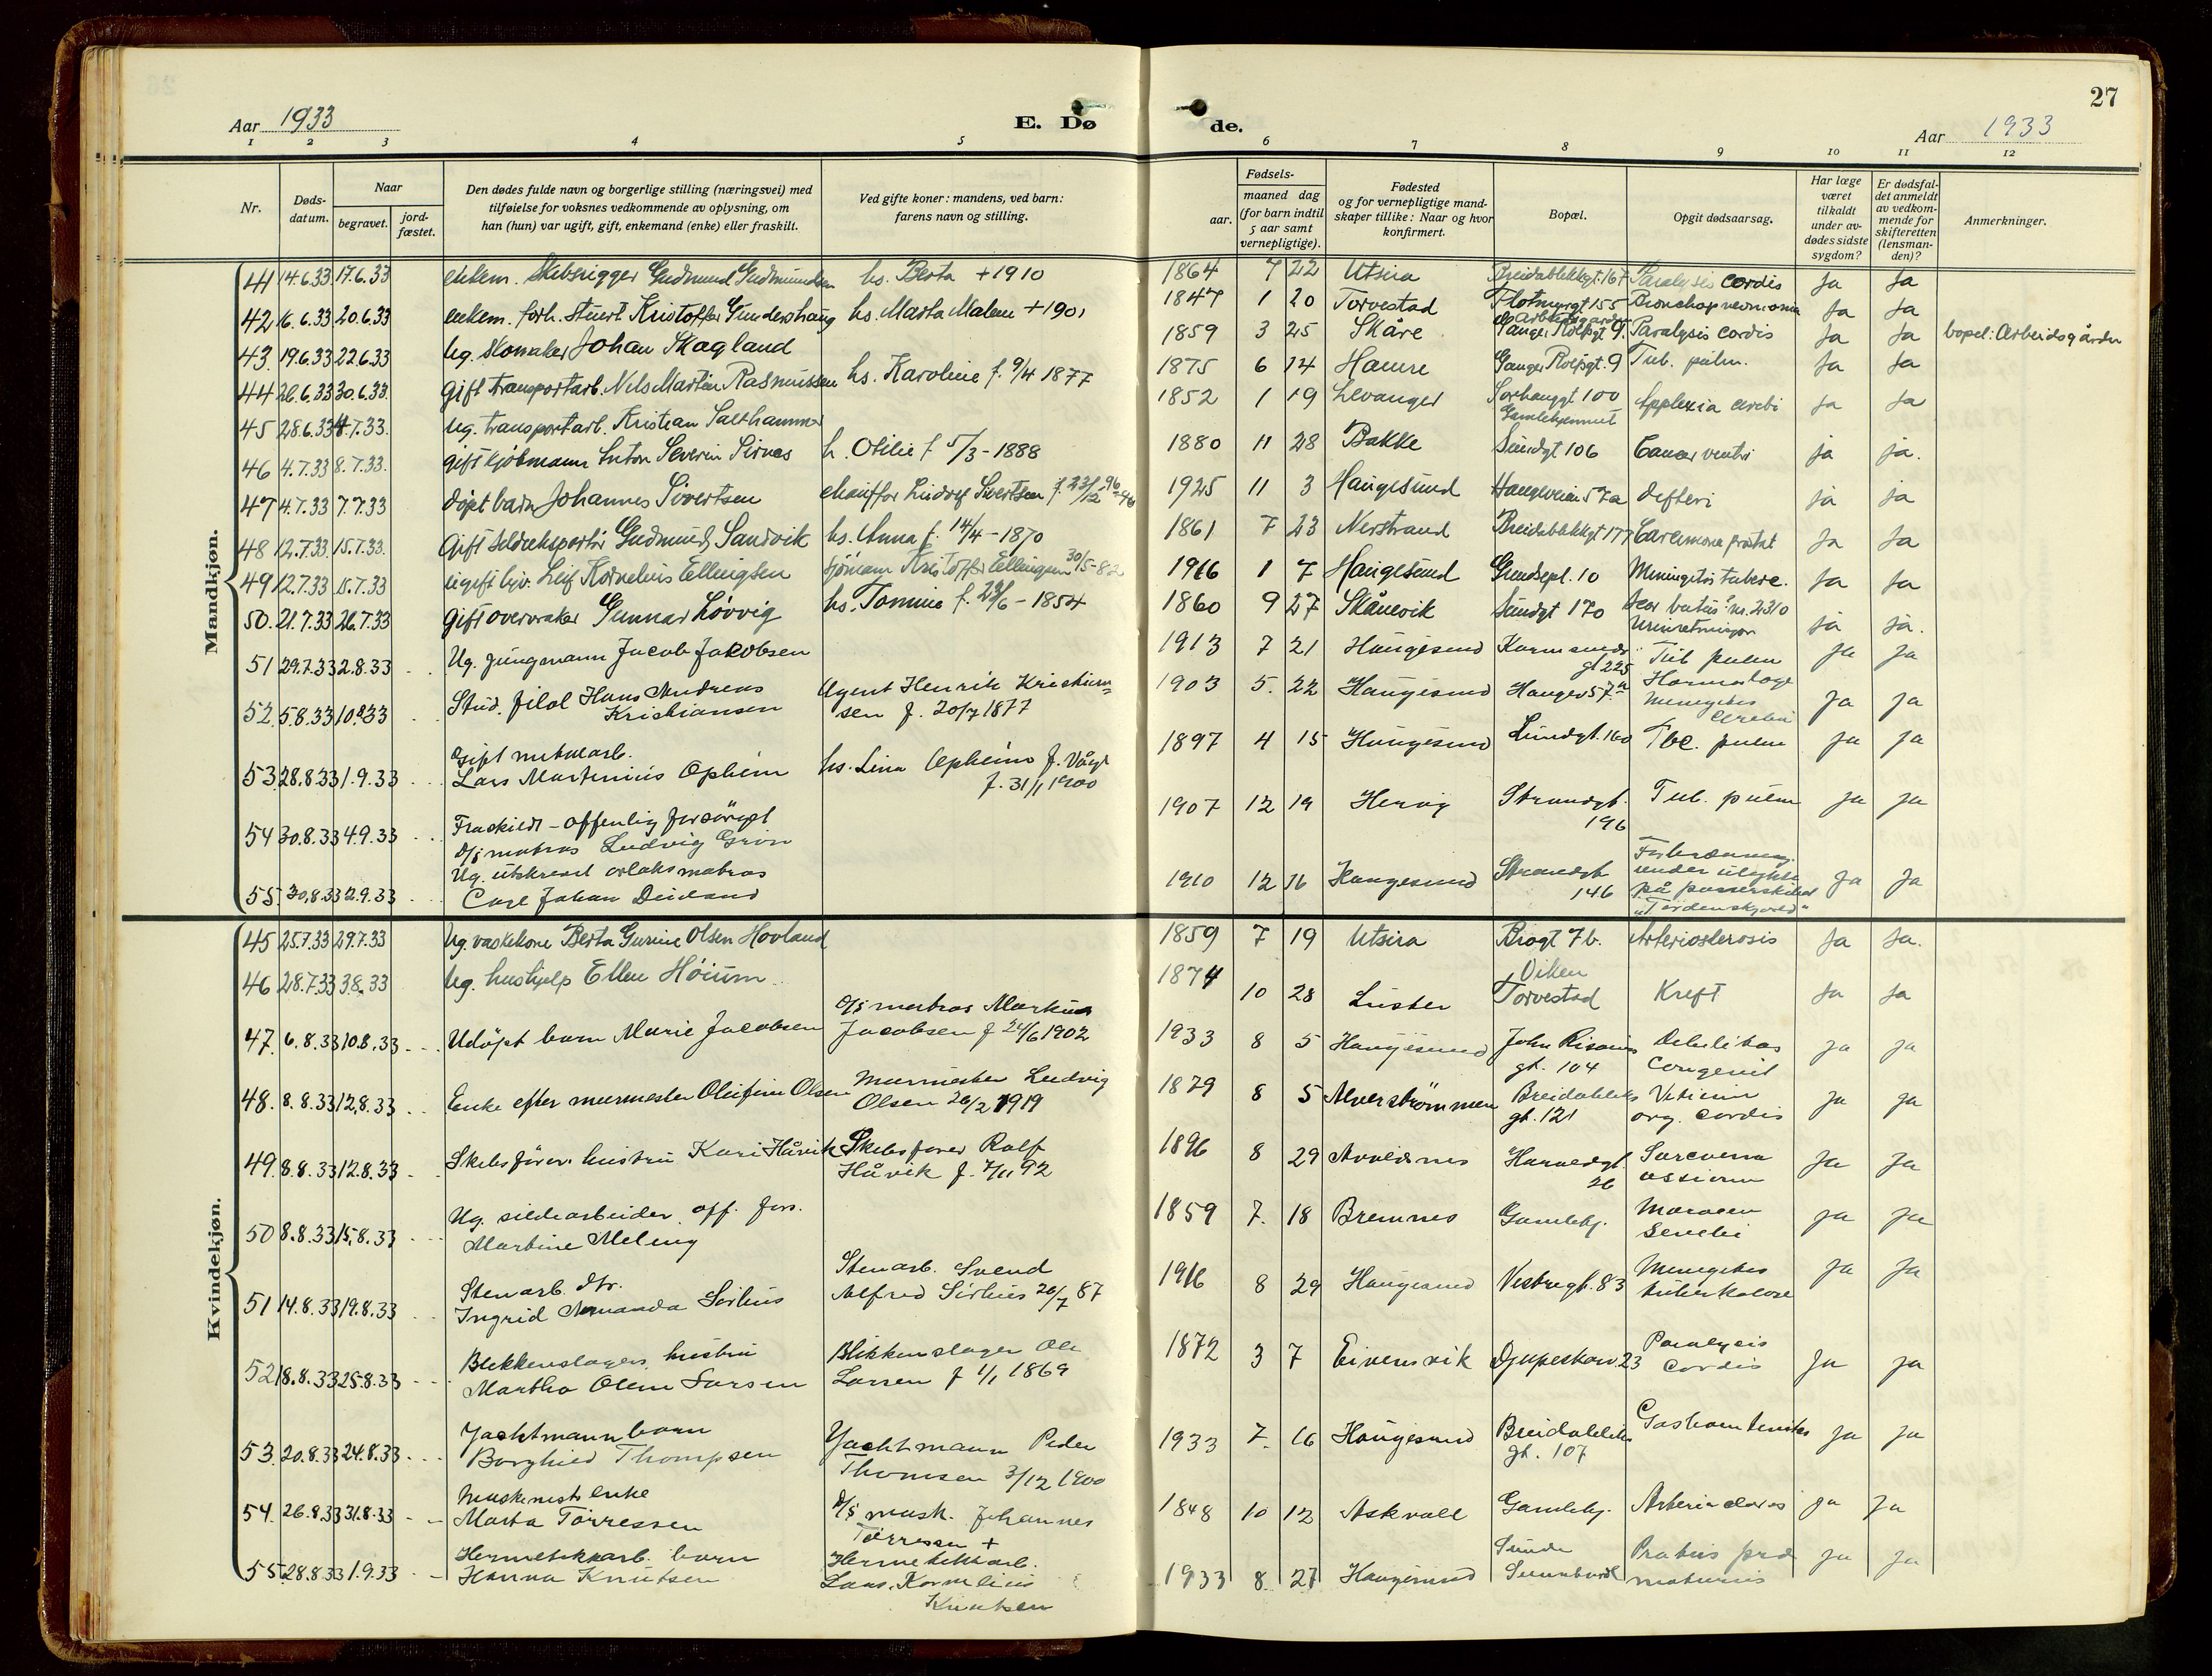 27
Aar 1933
E. Døde.
Aar 1933
1 2 3 4 5 6 7 8 9 10 11 12
Nr.
Døds-
datum.
Naar
begravet.
jord-
fæstet.
Den dødes fulde navn og borgerlige stilling (næringsvei) med
tilføielse for voksnes vedkommende av oplysning, om
han (hun) var ugift, gift, enkemand (enke) eller fraskilt.
Ved gifte koner: mandens, ved barn:
farens navn og stilling.
Fødsels-
aar.
maaned dag
(for barn indtil
5 aar samt
vernepligtige).
Fødested
og for vernepligtige mand-
skaper tillike: Naar og hvor
konfirmert.
Bopæl.
Opgit dødsaarsag.
Har læge
været
tilkaldt
under av-
dødes sidste
sygdom?
Er dødsfal-
det anmeldt
av vedkom-
mende for
skifteretten
(lensman-
den)?
Anmerkninger.
Mandkjøn.
41 14.6.33 17.6.33 enkem. Skibsrigger Gudmund Gudmundsen hs. Berta +1910 1864 7 22 Utsira Breidablikkgt. 167 Paralysis cordis Ja Ja
42 16.6.33 20.6.33 enkem. forh. Stuert Kristoffer Gundershaug hs. Marta Malene +1901 1847 1 20 Torvestad Flotmyrgt 155 Bronchopneumonia Ja Ja
43. 19.6.33 22.6.33 Ug. Skomaker Johan Skagland 1859 3 25 Skåre Arbeidsgården Ganger Rolfsgt 9. Paralysis cordis Ja Ja bopel: Arbeidsgården
44 26.6.33 30.6.33. Gift transportarb. Nels Martin Rasmussen hs. Karoline f. 9/4 1877 1875 6 14 Hamre Ganger Rolfsgt. 9 Tub. pulm. Ja Ja
45 28.6.33 4.7.33. Ug. transportarb. Kristian Salthammer 1852 1 19 Levanger Sørhauggt 100 Gamlehjemmet Applexia cerebi Ja Ja
46 4.7.33 8.7.33. gift kjøbmann Anton Severin Sirnes h. Otilie f 5/3-1888 1880 11 28 Bakke Sundgt 106 Cancer ventri ja ja.
47 4.7.33 7.7.33 døpt barn Johannes Sivertsen chauffør Ludvig Sivertsen f. 23/12 96 1925 11 3 Haugesund Haugeveien 57a defteri ja ja
48 12.7.33. 15.7.33. Gift sildeeksportør Gudmund Sandvik hs. Anna f. 14/4-1870 1861 7 23 Nerstrand Breidablikkgt 177 Carcinoma prostat Ja Ja
49 12.7.33 15.7.33 ugift Leif Kornelius Ellingsen sjømann Kristoffer Ellingsen 30/5-82 1916 1 7 Haugesund Grundsepl. 10 Meningitis tuberc. Ja Ja
50. 21.7.33 26.7.33 gift overvraker Gunnar Løvvig hs. Tomine f. 23/6-1854 1860 9 27 Skånevik Sundgt 170 nr. 2310 ja ja.
51 29.7.33 2.8.33 Ug. jungmann Jacob Jakobsen 1913 7 21 Haugesund Karmsunds gt 225 Tub pulm ja ja
52. 5.8.33 10.8.33 Stud. filol Hans Andreas Kristiansen Agent Henrik Kristiansen f. 20/7 1877 1903 5. 22 Haugesund Haugev 57a Meningitis cerebri ja ja
53 28.8.33 1.9.33 Gift Lars Martinius Opheim hs. Lina Opheim f. Våge f. 31/1 1900 1897 4 15 Haugesund Sundgt. 160 Tbc. pulm ja ja
54 30.8.33 4.9.33 Fraskildt - offentlig forsörget D/s matros Ludvig Grøn 1907 12 19 Hervig Strandgt. 196 Tub. pulm ja ja
55 30.8.33 2.9.33 Ug. utskrevet orlogsmatros Carl Johan Deidand 1910 12 16 Haugesund Strandgt 146 Forbrænning under ulykke på panserskibet "Tordenskjold" ja ja
Kvindekjøn.
45 25.7.33 29.7.33 Ug. vaskekone Berta Gurine Olsen Hovland 1859 7 19 Utsira Brogt 7b. Arteriosclerosis Ja Ja.
46 28.7.33 3.8.33 Ug. hushjelp Ellen Høium 1874 10 28 Luster Viken Torvestad Kreft Ja Ja
47. 6.8.33 10.8.33 Udøpt barn Marie Jacobsen D/s matros Markus Jacobsen f 24/6 1902 1933 8 5 Haugesund John Risøens gt. 104 Debilitas Congenit ja ja
48. 8.8.33 12.8.33 Enke efter murmester Olufine Olsen Murmester Ludvig Olsen 20/2 1919 1879 8 5 Alverströmmen Breidabliks gt. 121 Vitium org. cordis ja ja
49. 8.8.33 12.8.33 Skibsförer hustru Kari Håvik Skibsförer Rolf Håvik f. 7/11 92 1896 8 29 Avaldsnes Haraldgt. 26 Sarcoma ossium ja ja
50 8.8.33 15.8.33 Ug. sildearbeider off. fors. Martine Meling 1859 7. 18 Bremnes Gamlehj. Marasm Senilis ja ja
51 14.8.33 19.8.33 Stenarb. dtr. Ingrid Amanda Sirhus Stenarb. Svend Alfred Sirhus 20/7 87 1916 8 29 Haugesund Vestregt. 83 Meningitis tuberkulose ja ja
52 18.8.33 25.8.33 Blikkenslagers hustru Martha Oline Larsen Blikkenslager Ole Larsen f 1/1 1869 1872 3 7 Eivensvik Djupeskar. 23 Paralysis Cordis ja ja
53. 20.8.33 24.8.33 Yachtmann barn Borghild Thompsen Yachtmann Peder Thomsen 3/12 1900 1933 7. 16 Haugesund Breidabliks gt. 107 Gastroenteritis ja ja
54. 26.8.33 31.8.33 Maskinists enke Marta Tørressen D/s mask. Johannes Tørressen + 1848 10 12 Askvoll Gamlehj. ja ja
55 28.8.33 1.9.33 Hermetikkarb. barn Hanna Knutsen Hermetikkarb. Lars Kornelius Knutsen 1933 8 27 Haugesund Partus præ maturus ja ja